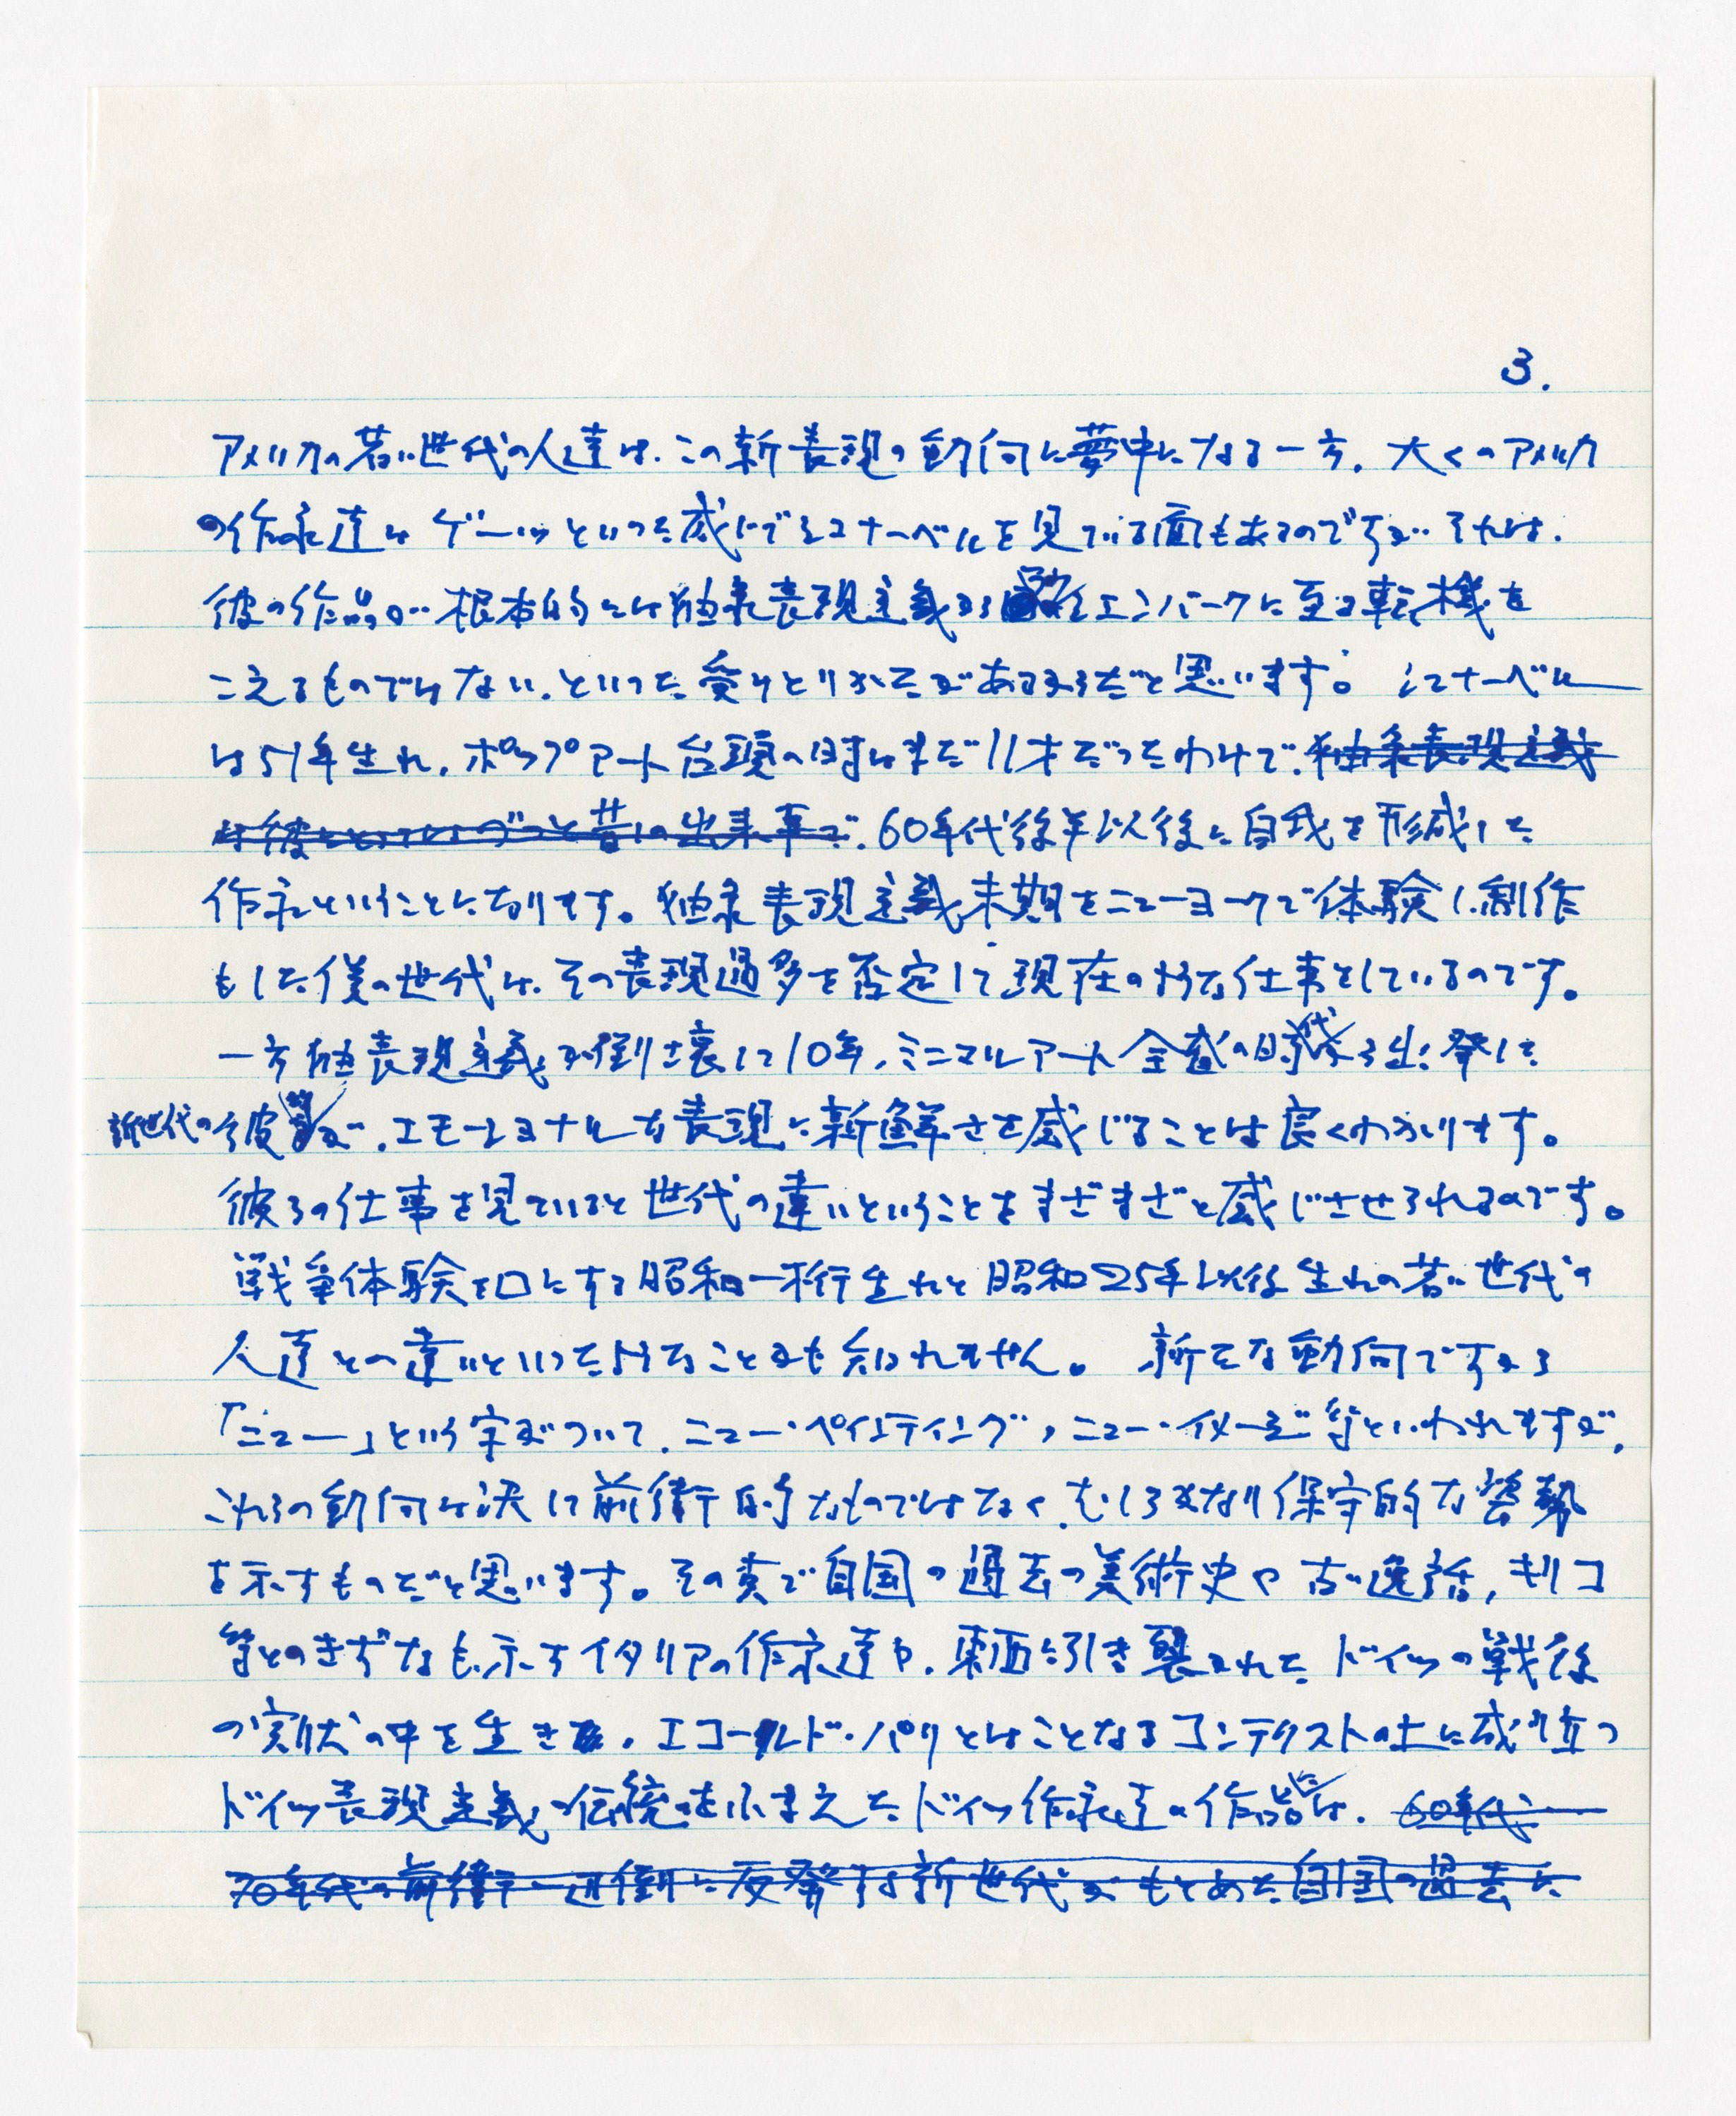 3.
アメリカの若い世代の人達は、この新表現の動向に夢中になる一方、大くのアメリカ
の作家達は ゲーッといった感じでシュナーベルを見ている面もあるのですが、それは、
彼の作品が根本的には抽象表現主義から ラウシェンバーグに至る転機を
こえるものではない、といった受けとりかたがあるからだと思います。シュナーベル
は51年生れ、ポップアート台頭の時はまだ11才だったわけで、抽象表現主義
は彼にとってはずっと昔の出来事で、60年代後半以後に自我を形成した
作家ということになります。抽象表現主義末期をニューヨークで体験し、制作
もした僕の世代は、その表現過多を否定して現在の様な仕事をしているのです。
一方抽表現主義が倒壊して10年、ミニマルアート全盛の時代から出発した
新世代の彼等が、エモーショナルな表現に新鮮さを感じることは良くわかります。
彼らの仕事を見ていると世代の違いということをまざまざと感じさせられるのです。
戦争体験を口にする昭和一桁生れと昭和25年以後生れの若い世代の
人達との違いといった様なことかも知れません。 新たな動向ですから
「ニュー」という字がついて、ニュー・ペインティング、ニュー・イメージ等といわれますが、
これらの動向は決して前衛的なものではなく、むしろかなり保守的な姿勢
を示すものだと思います。その点で自国の過去の美術史や古い逸話、キリコ
等とのきずなも示すイタリアの作家達や、東西に引き裂かれたドイツの戦後
の実状の中を生き、エコール・ド・パリとはことなるコンテクストの上に成り立つ
ドイツ表現主義の伝統をふまえたドイツ作家達の作品には、60年代
70年代の前衛一辺倒に反発する新世代がもとめた自国の過去に